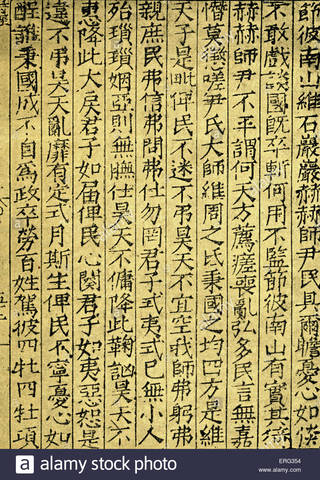 節彼南山維石巖巖赫赫師尹民具爾瞻憂心如惔
不敢戲談國既卒斬何用不監節彼南山有實其猗
赫赫師尹不平謂何天方薦瘥喪亂弘多民言無嘉
憯莫懲嗟尹氏大師維周之氐秉國之均四方是維
天子是毗俾民不迷不弔昊天不宜空我師弗躬弗
親庶民弗信弗問弗仕勿罔君子式夷式已無小人
殆瑣瑣姻亞則無膴仕昊天不傭降此鞠訩昊天不
惠降此大戾君子如屆俾民心闋君子如夷惡怒是
違不弔昊天亂靡有定式月斯生俾民不寧憂心如
酲誰秉國成不自為政卒勞百姓駕彼四牡四牡項
alamy stock photo
ERG354
www.alamy.com